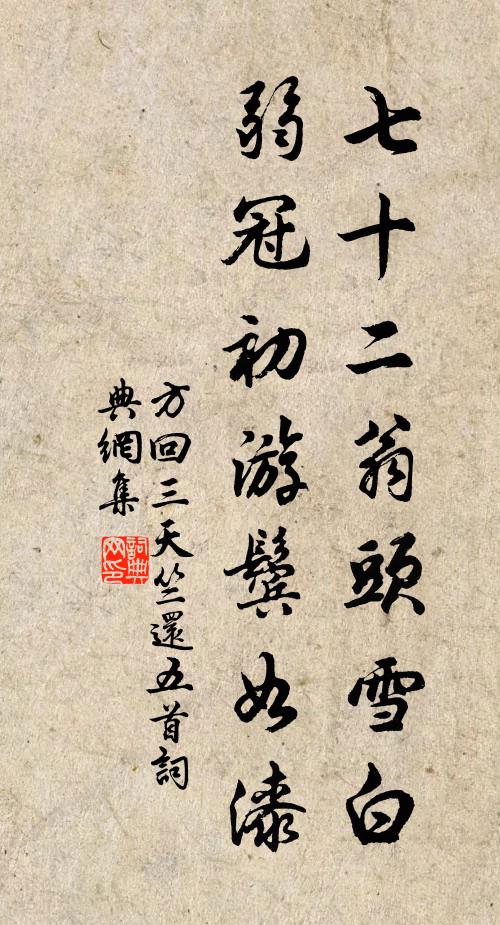 七十二翁頭雪白
弱冠初游鬓如漆
方回三天竺還五首詞
典網集
詞典
网印